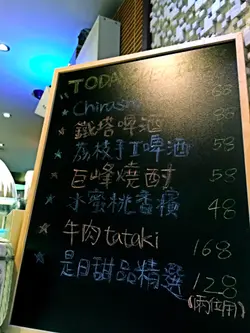 "TODAY
Chirashi 88
★ 鐵塔啤酒 88
★ 荔枝手工啤酒 58
★ 巨峰燒酎 58
★ 水蜜桃香檳 48
★ 牛肉tataki 168
★ 是日甜品精選 128
(兩位用)